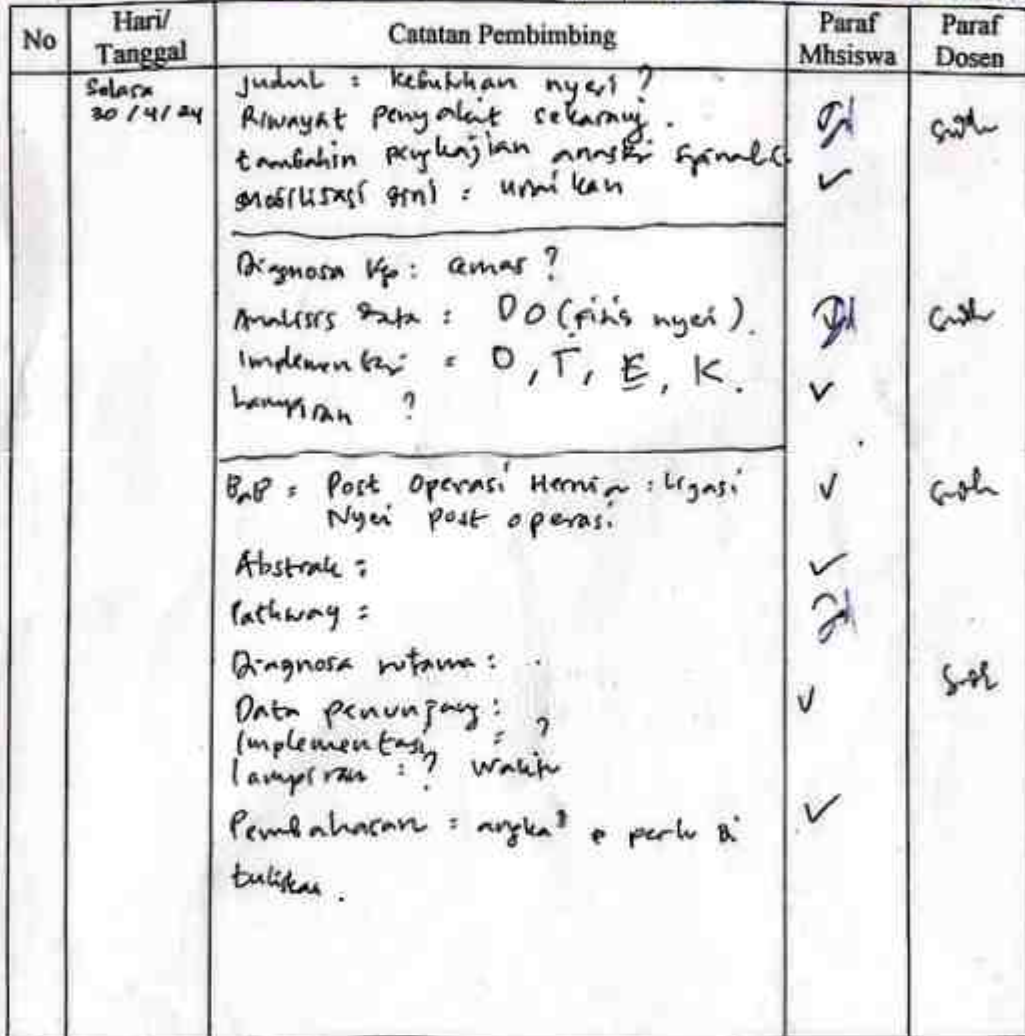 No Hari/ Tanggal Catatan Pembimbing Paraf Mhsiswa Paraf Dosen
Selasa
30/4/24
Judul : kebutuhan nyeri ?
Riwayat penyakit sekarang .
tambahin pengkajian anastsi spinalis
mobilisasi dini : uraikan
Diagnosa kp : cemas ?
Analisis data : DO (
nyeri ).
Implementasi = O, T, E, K.
Lampiran ?
BaB = Post Operasi Hernia :
Nyeri post operasi
Abstrak :
Pathway =
Diagnosa utama :
Data penunjang :
Implementasi = ?
lampiran : ? waktu
Pembahasan = angka²
perlu di
tuliskan .